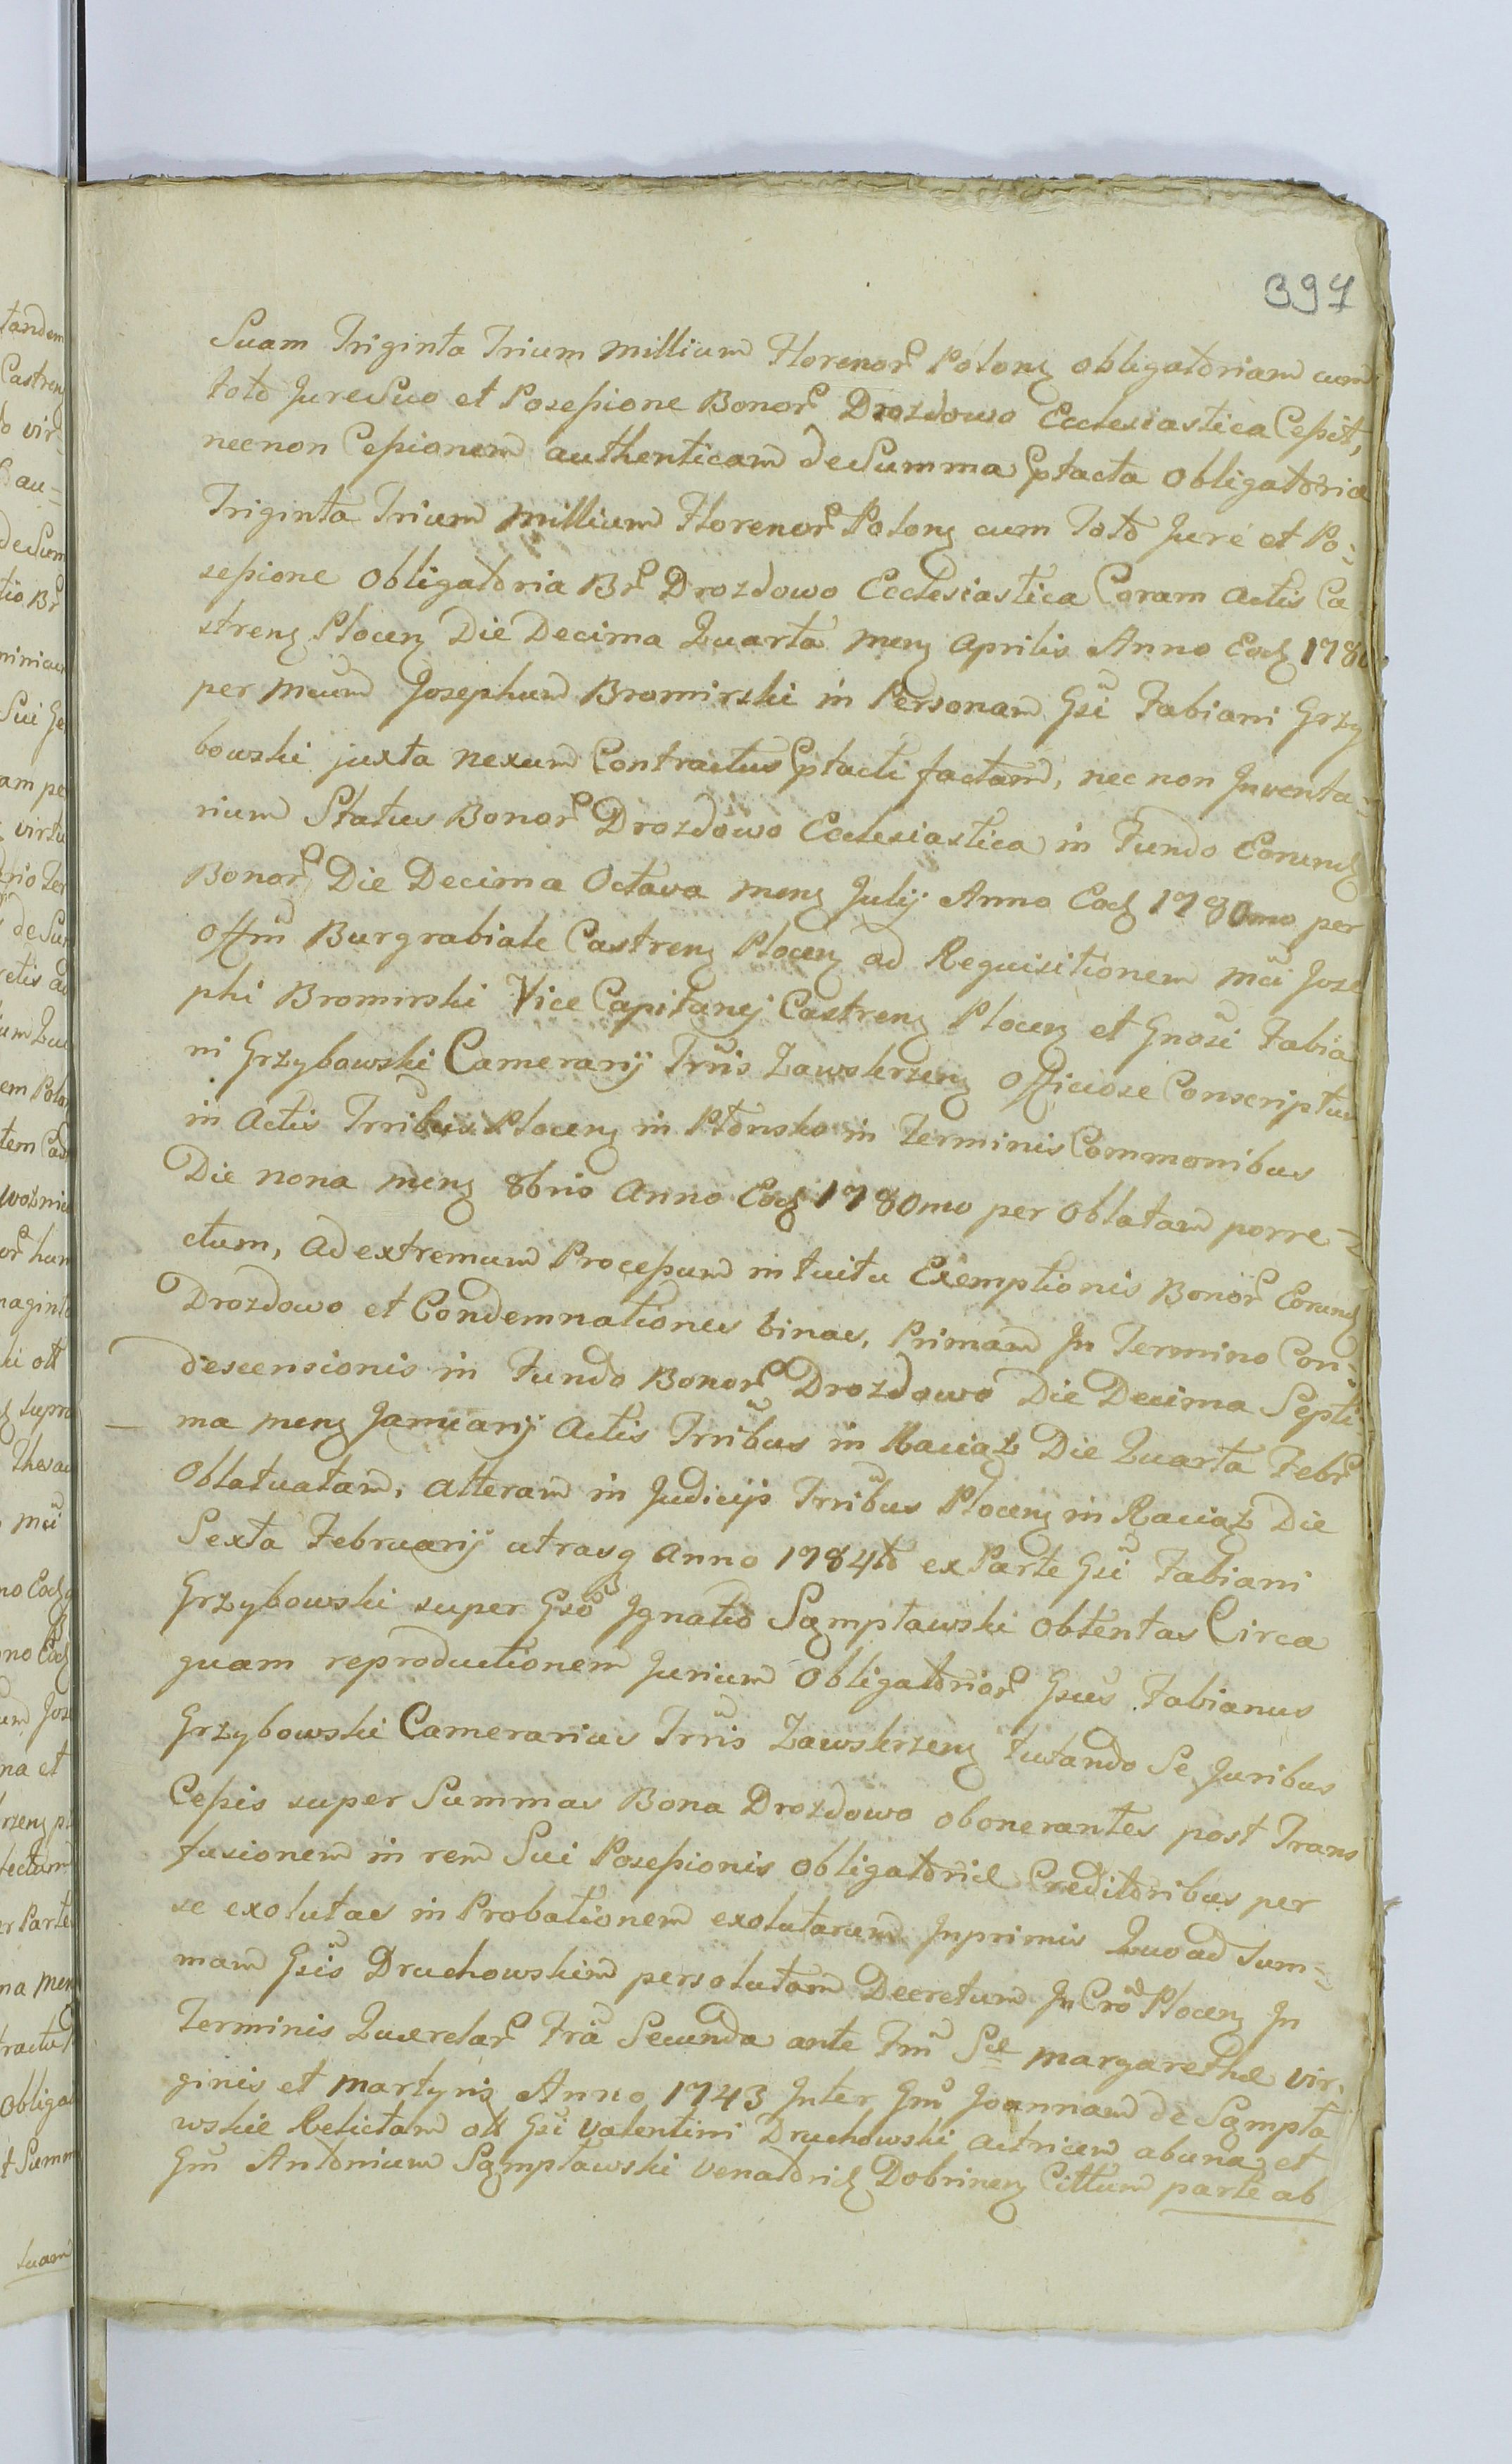 397
Suam Triginta Trium Millium Florenor Polong obligatoriam cum
toto Jure Suo et Posessione Bonor Drozdowo Ecclesiastica Cessit,
necnon Cessionem authenticam de Summa Ptacta obligatoria
Triginta Trium Millium Florenor Polong cum Toto Jure et Po=
sessione obligatoria Br Drozdowo Ecclesiastica Coram Actis Ca
streng Ploceng Die Decima Quarta Meng Aprilis Anno Eod 1780
per Mcum Josephum Bromirski in Personam Gsi Fabiani Grzy
bowski juxta nexum Contractus Ptacti factam, nec non Inventa=
rium Status Bonor Drozdowo Ecclesiastica in Fundo Eorund
Bonor Die Decima Octava meng Julij Anno Eod 1780mo per
Offm Burgrabiale Castreng Ploceng ad Requisitionem Mci Jose
phi Bromirski Vice Capitanej Castreng Ploceng et Gnosi Fabia
ni Grzybowski Camerarij Trris Zawskrzeng Officiose Conscriptum
in Actis Trribus Ploceng in Płonsko in Terminis Commonibus
Die nona meng 8bris Anno Eod 1780mo per Oblatam porre=
ctum, Ad extremum Processum intuitu Exemptionis Bonor Eorund
Drozdowo et Condemnationes binas, Primam In Termino Con=
descensionis in Fundo Bonor Drozdowo Die Decima Septi
ma meng Januarij Actis Trribus in Raciąż Die Quarta Febr
Oblatuatam, alteram in Judicijs Trribus Ploceng in Raciąż Die
Sexta Februarij utrasq Anno 1784to ex Parte Gsi Fabiani
Grzybowski super Gso Ignatio Sąmpławski obtentas Circa
quam reproductionem Jurium Obligatorior Gsus Fabianus
Grzybowski Camerarius Trris Zawskrzeng tutando Se Juribus
Cessis super Summas Bona Drozdowo obonerantes post Trans
fusionem in rem Sui Posessionis obligatoriæ Creditoribus per
se exolutas in Probationem exolutarum Inprimis Quoad Sum=
mam Gsis Druchowskim persolutam Decretum In Cro Ploceng In
Terminis Querelar Fria Secunda ante Fm Sæ Margarethæ Vir=
ginis et Martyris Anno 1743 Inter Gm Joannam de Sąmpła
wskie Relictam olt Gsi Valentini Druchowski actricem abuna et
Gm Antonium Sąmpławski Venatorid Dobrineng Cittum parte ab